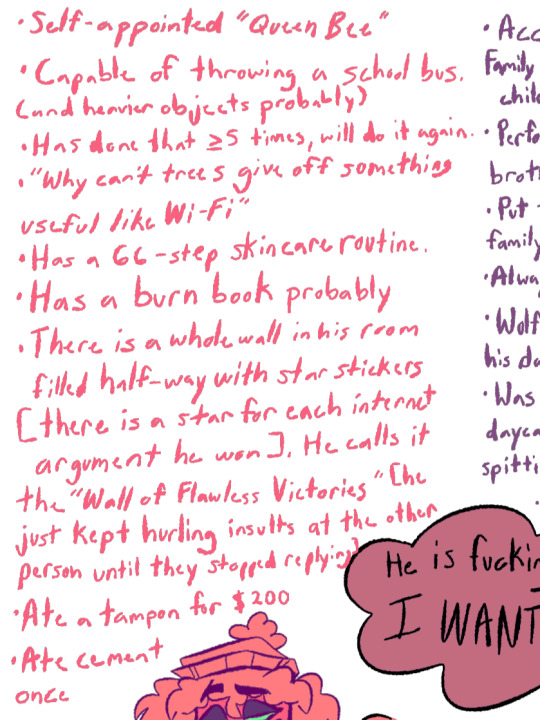 • Self-appointed "Queen Bee"
• Capable of throwing a school bus.
(and heavier objects probably)
• Has done that ≥5 times, will do it again.
• "Why can't trees give off something
useful like Wi-Fi"
• Has a 66-step skincare routine.
• Has a burn book probably
• There is a whole wall in his room
filled half-way with star stickers
[there is a star for each internet
argument he won]. He calls it
the "Wall of Flawless Victories" [he
just kept hurling insults at the other
person until they stopped replying]
• Ate a tampon for $200
• Ate cement
once
• Acc
Family
chil
• Perfo
brot
• Put
family
• Alwa
• Wolf
his da
• Was
dayca
spitti
He is fuckin
I WANT